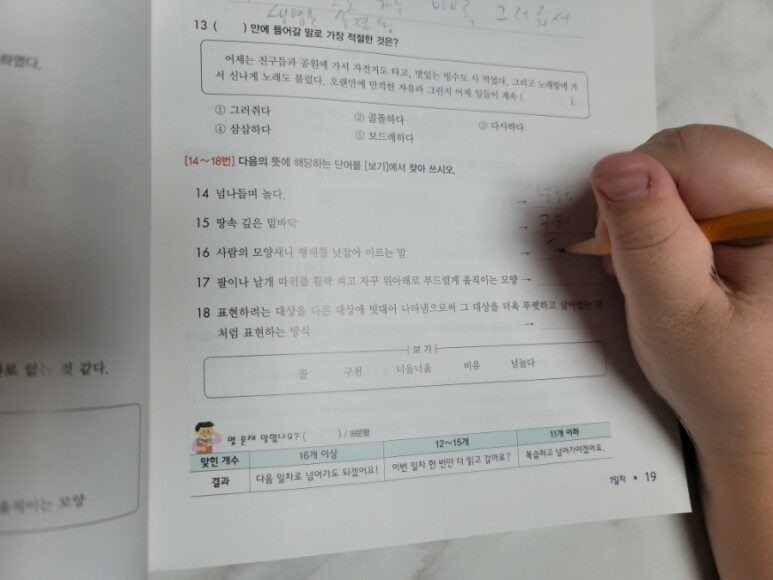 그러움서
하였다.
13 (      ) 안에 들어갈 말로 가장 적절한 것은?
어제는 친구들과 공원에 가서 자전거도 타고, 맛있는 빙수도 사 먹었다. 그리고 노래방에 가
서 신나게 노래도 불렀다. 오랜만에 만끽한 자유라 그런지 어제 일들이 계속 (      ).
① 그러쥐다
② 골똘하다
③ 다사하다
④ 삼삼하다
⑤ 보드레하다
[14~18번] 다음의 뜻에 해당하는 단어를 [보기]에서 찾아 쓰시오.
14 넘나들며 놀다. →
15 땅속 깊은 밑바닥 → 구천
16 사람의 모양새나 행태를 낮잡아 이르는 말 →
17 팔이나 날개 따위를 활짝 펴고 자꾸 위아래로 부드럽게 움직이는 모양 →
18 표현하려는 대상을 다른 대상에 빗대어 나타냄으로써 그 대상을 더욱 뚜렷하고 살아있는 것
처럼 표현하는 방식 →
보기
꼴 구천 너울너울 비유 넘놀다
로 있는 것 같다.
몇 문제 맞혔나요? (      ) / 18문항
맞힌 개수 16개 이상 12~15개 11개 이하
결과 다음 일차로 넘어가도 되겠어요! 이번 일차 한 번만 더 읽고 갈까요? 복습하고 넘어가야겠어요.
움직이는 모양
1일차 • 19